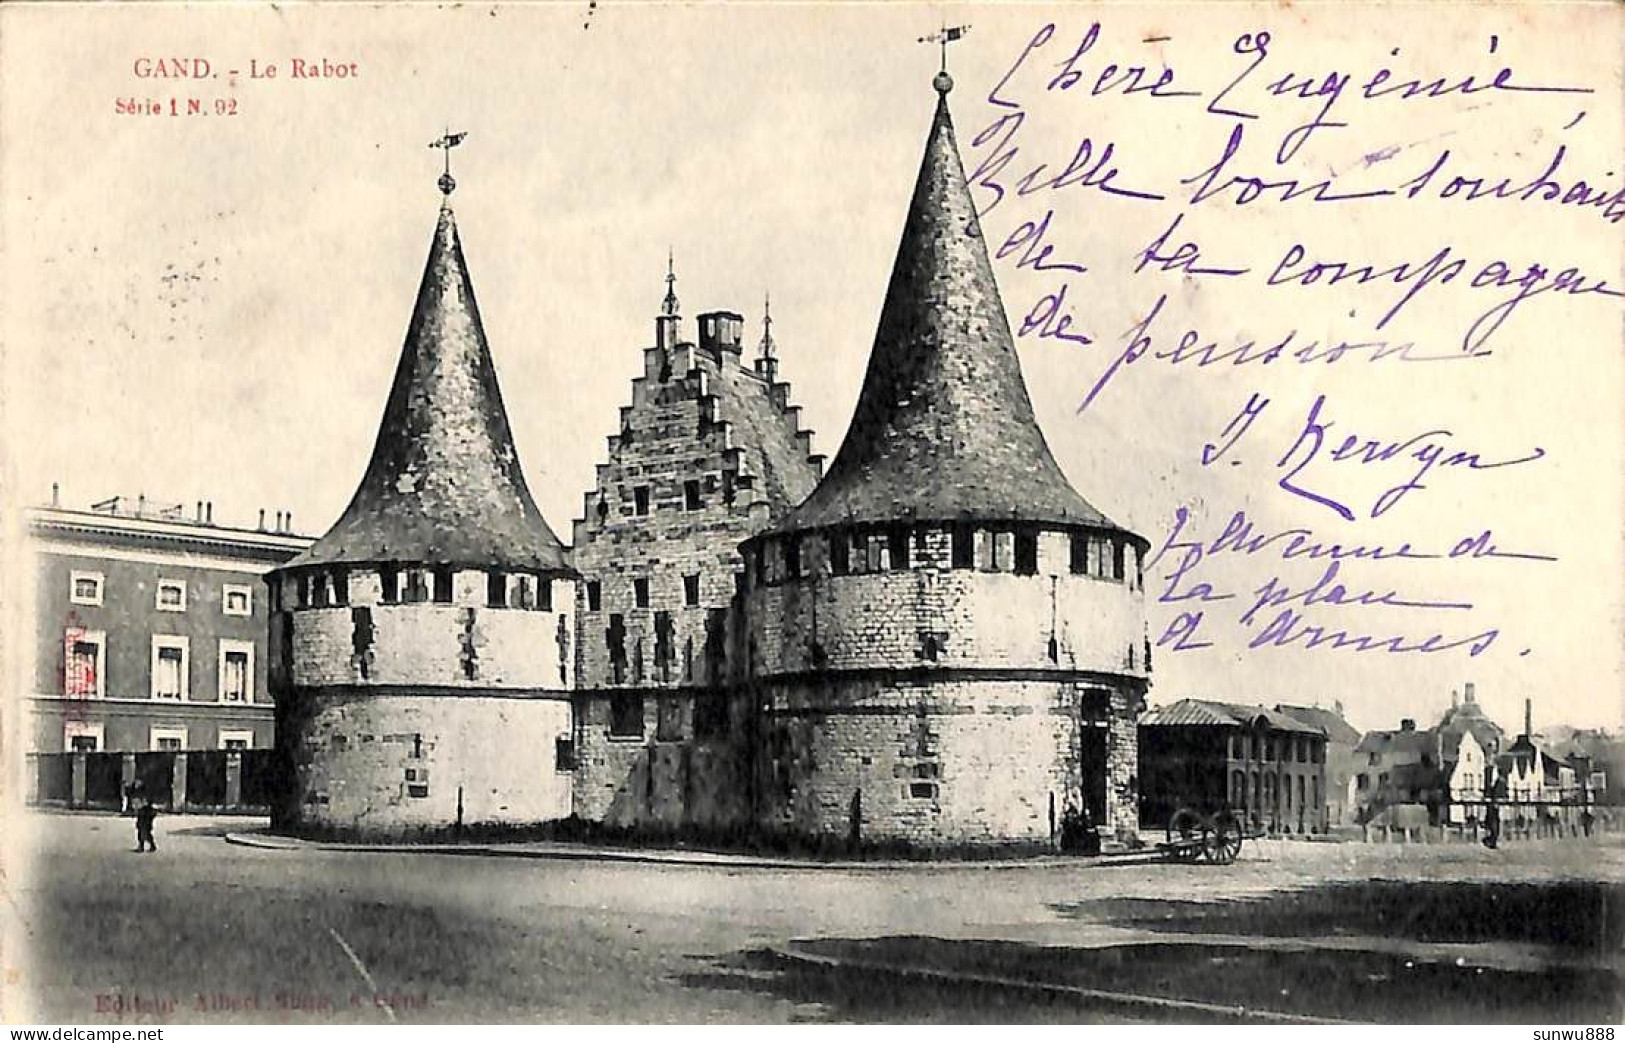 GAND. - Le Rabot
Série 1 N. 92
Chère Eugénie,
Mille bon souhaits
de ta compagne
de pension
J. Kervyn
7 Avenue de
la plaine
d'armes.
Editeur Albert Sugg, à Gand.
sunwu888